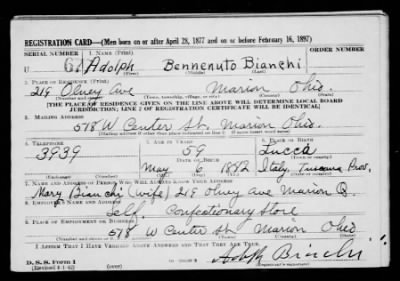 REGISTRATION CARD—(Men born on or after April 28, 1877 and on or before February 16, 1897)
SERIAL NUMBER 1. NAME (Print) ORDER NUMBER
U Adolph Bennenuto Bianchi
(First) (Middle) (Last)
2. PLACE OF RESIDENCE (Print)
219 Olney Ave Marion Ohio.
(Number and street) (Town, township, village, or city) (County) (State)
[THE PLACE OF RESIDENCE GIVEN ON THE LINE ABOVE WILL DETERMINE LOCAL BOARD
JURISDICTION; LINE 2 OF REGISTRATION CERTIFICATE WILL BE IDENTICAL]
3. MAILING ADDRESS
578 W Center St. Marion Ohio.
[Mailing address if other than place indicated on line 2. If same insert word same]
4. TELEPHONE 5. AGE IN YEARS 6. PLACE OF BIRTH
3939 59 Lucca
DATE OF BIRTH (Town or county)
May 6 1882 Italy, Tuscana Prov.
(Mo.) (Day) (Yr.) (State or country)
7. NAME AND ADDRESS OF PERSON WHO WILL ALWAYS KNOW YOUR ADDRESS
Mary Bianchi (wife) 219 Olney Ave Marion O.
8. EMPLOYER'S NAME AND ADDRESS
Self. Confectionary Store
9. PLACE OF EMPLOYMENT OR BUSINESS
578 W Center St Marion Ohio
(Number and street or R. F. D. number) (Town) (County) (State)
I AFFIRM THAT I HAVE VERIFIED ABOVE ANSWERS AND THAT THEY ARE TRUE.
D. S. S. Form 1
(Revised 4-1-42) (over) Adolph Bianchi